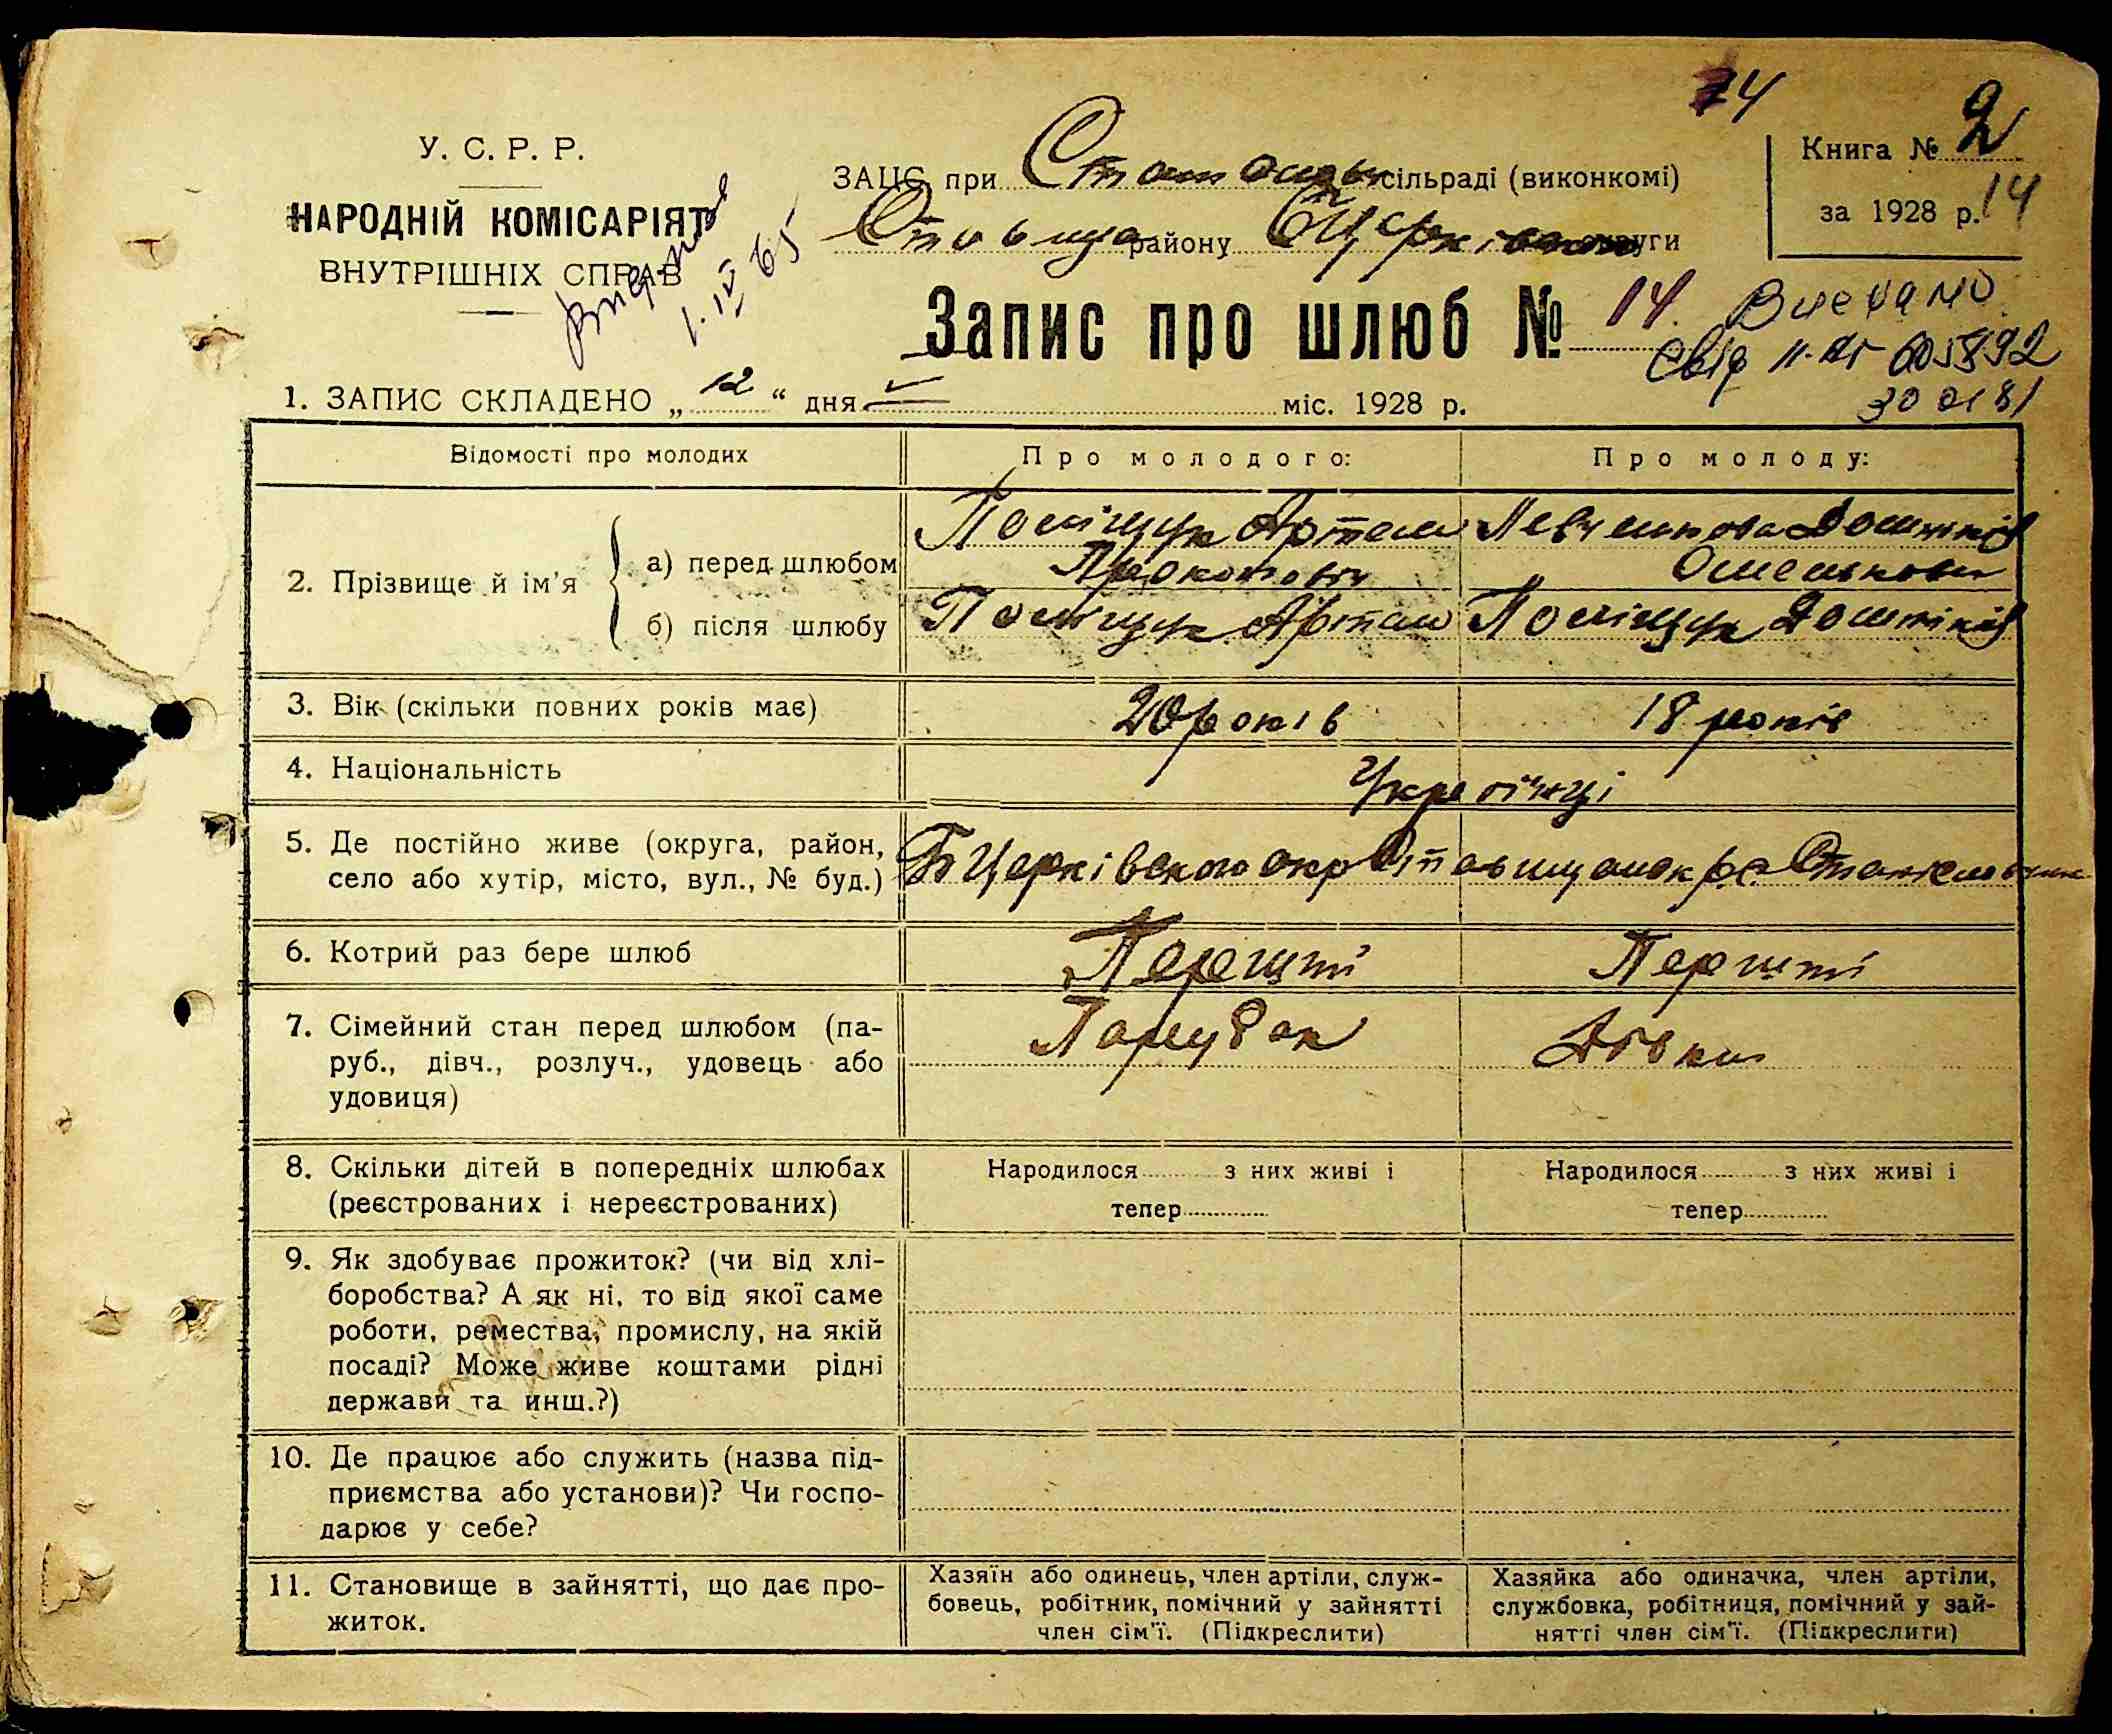 74
У. С. Р. Р.
НАРОДНІЙ КОМІСАРІЯТ
ВНУТРІШНІХ СПРАВ
1. IV 65
ЗАЦС при сільраді (виконкомі)
району округи
Книга № 2
за 1928 р. 14
Запис про шлюб № 14.
Видано
Свід 605892
1. ЗАПИС СКЛАДЕНО „ 12 “ дня V міс. 1928 р.
Відомості про молодих
Про молодого:
Про молоду:
2. Прізвище й ім’я
а) перед шлюбом
Поліщук Артем
Прокопович
б) після шлюбу
Поліщук Артем
Поліщук
3. Вік (скільки повних років має)
20 років
18 років
4. Національність
Українці
5. Де постійно живе (округа, район,
село або хутір, місто, вул., № буд.)
Б Церківського окр
6. Котрий раз бере шлюб
Перший
Перший
7. Сімейний стан перед шлюбом (па-
руб., дівч., розлуч., удовець або
удовиця)
Парубок
Дівка
8. Скільки дітей в попередніх шлюбах
(реєстрованих і нереєстрованих)
Народилося з них живі і
тепер
Народилося з них живі і
тепер
9. Як здобуває прожиток? (чи від хлі-
боробства? А як ні, то від якої саме
роботи, ремества, промислу, на якій
посаді? Може живе коштами рідні
держави та инш.?)
10. Де працює або служить (назва під-
приємства або установи)? Чи госпо-
дарює у себе?
11. Становище в зайнятті, що дає про-
житок.
Хазяїн або одинець, член артіли, служ-
бовець, робітник, помічний у зайнятті
член сім’ї. (Підкреслити)
Хазяйка або одиначка, член артіли,
службовка, робітниця, помічний у зай-
нятті член сім’ї. (Підкреслити)